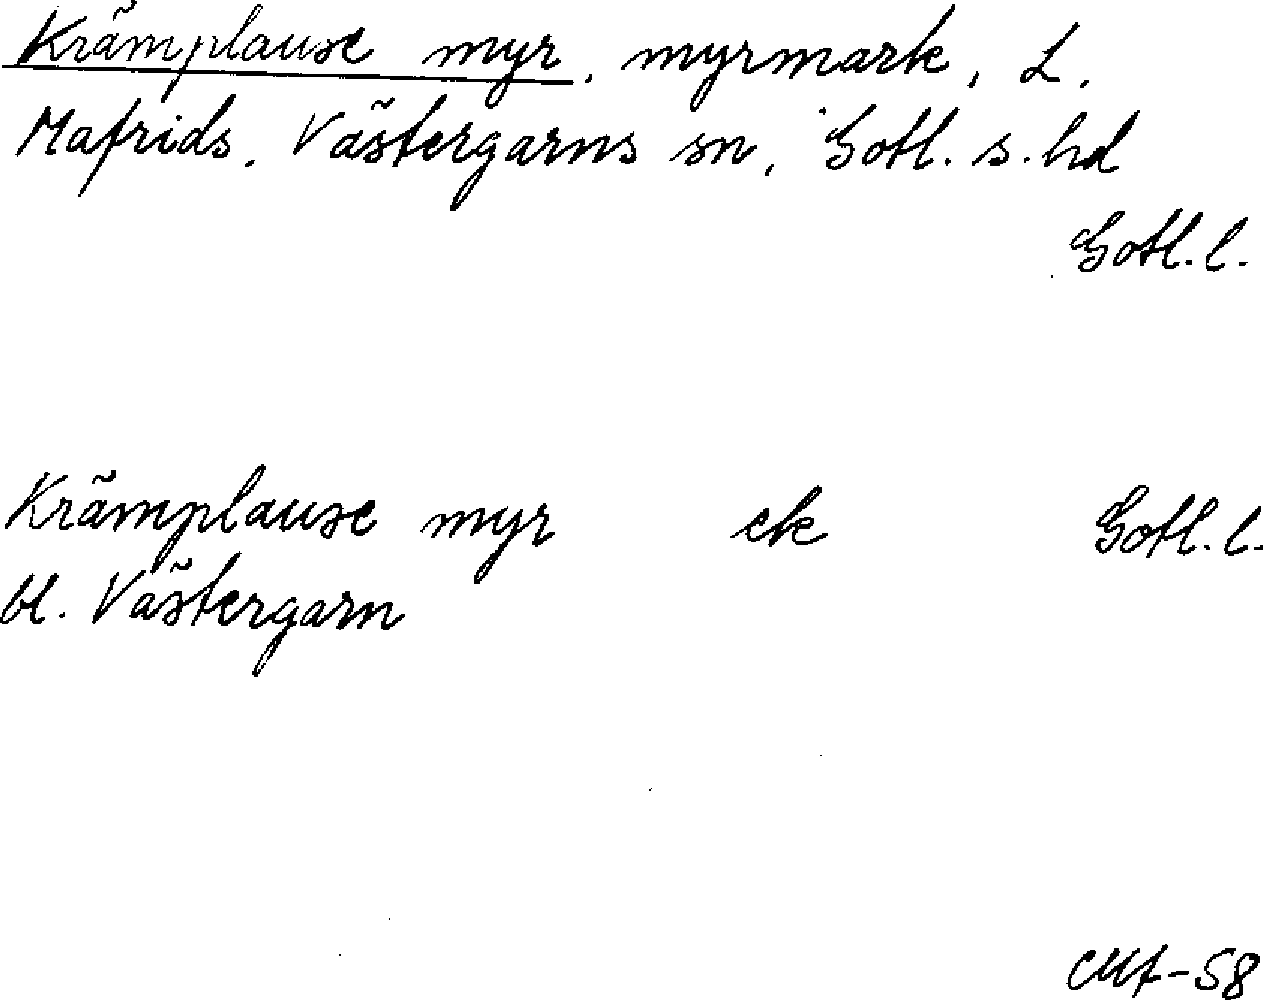 Krämplause myr, myrmark, L.
Mafrids, Västergarns sn, Gotl. s. hd
Gotl. l.
Krämplause myr ek Gotl. l.
bl. Västergarn